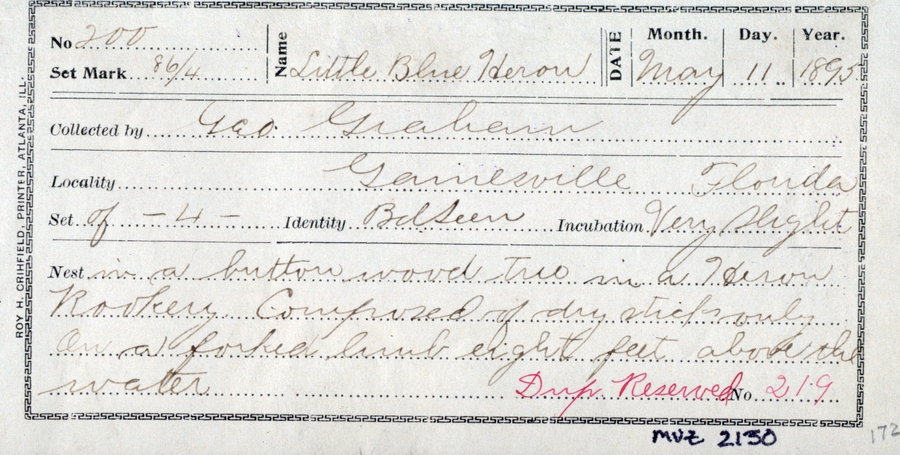 No 200 Name Little Blue Heron DATE Month. Day. Year.
Set Mark 86/4 May 11 1895
Collected by Geo. Graham
Locality Gainesville Florida
Set of - 4 - Identity Bd Seen Incubation Very Slight
Nest in a button wood tree in a Heron
Rookery. Composed of dry sticks only
On a forked limb eight feet above the
water Dup. Reserved No. 219
ROY H. CRIHFIELD, PRINTER, ATLANTA, ILL.
MVZ 2130
172